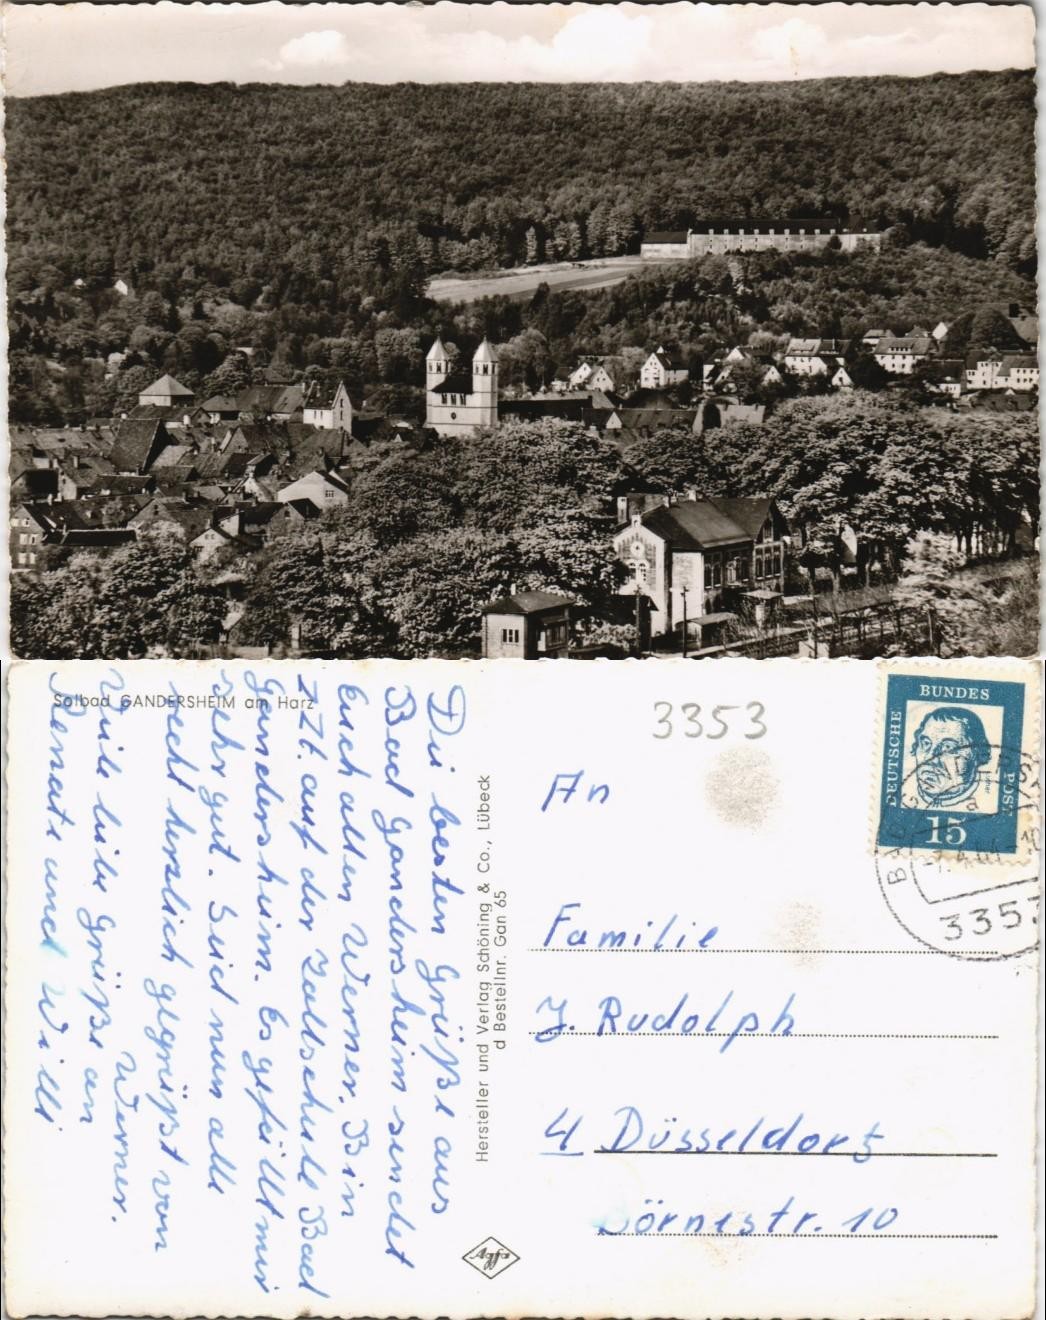 Solbad GANDERSHEIM am Harz
Die besten Grüße aus
Bad Gandersheim sendet
Euch allen Werner. Bin
z.Zt. auf der Zollschule Bad
Gandersheim. Es gefällt mir
sehr gut. Seid nun alle
recht herzlich gegrüßt von
Werner.
Viele liebe Grüße an
Renate und Willi
Hersteller und Verlag Schöning & Co., Lübeck
d Bestellnr. Gan 65
Agfa
3353
DEUTSCHE
BUNDES
POST
15
3353
An
Familie
J. Rudolph
4 Düsseldorf
Börnestr. 10